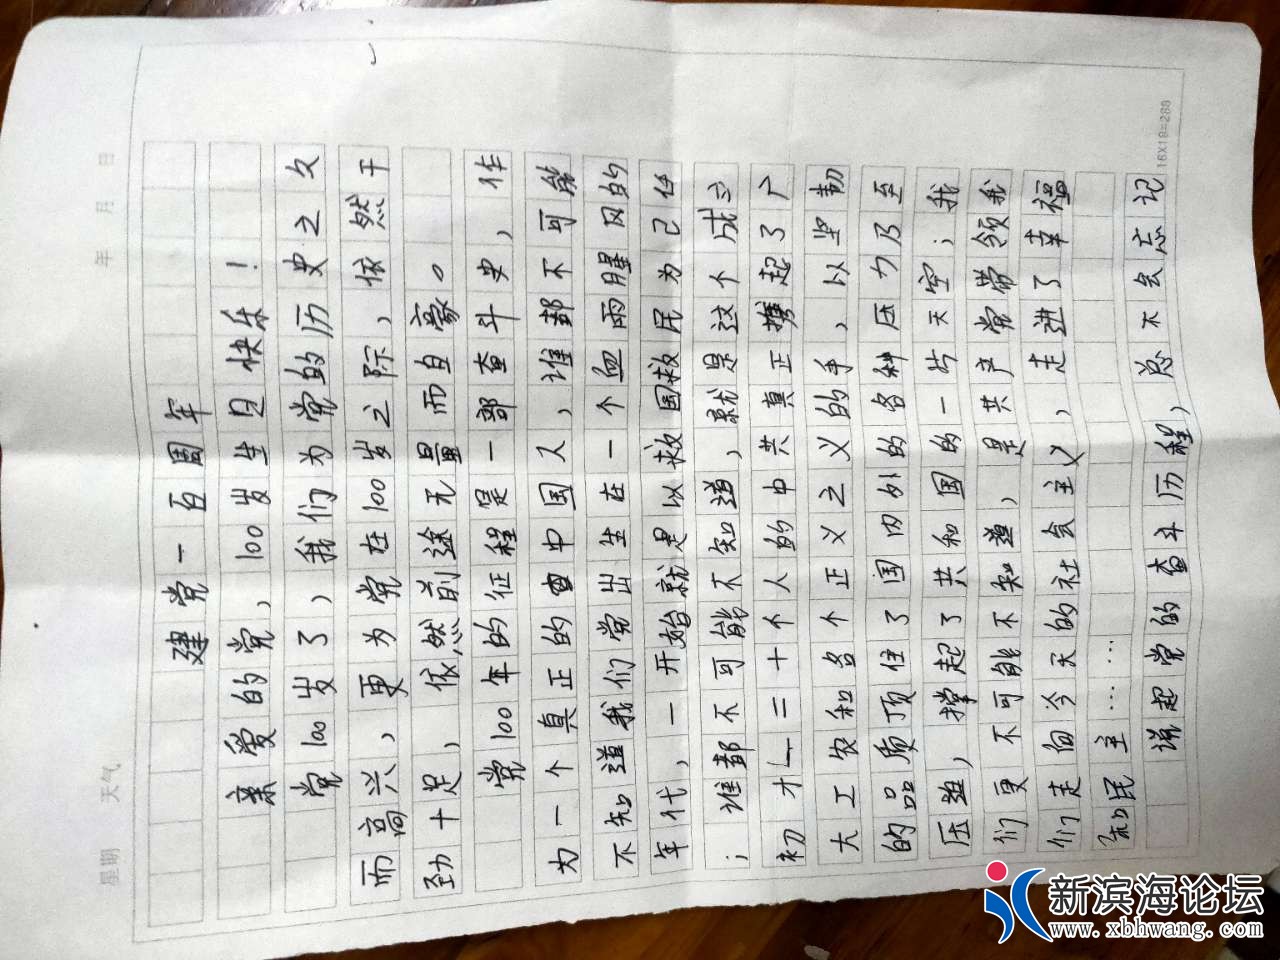 年 月 日
星期 天气
建党一百周年
亲爱的党，100岁生日快乐！
党100岁了，我们为党的历史之久
而高兴，更为党在100岁之际，依然干
劲十足，依然前途无量而自豪。
党100年的征程是一部奋斗史，作
为一个真正的中国人，谁都不可能
不知道我们党出生在一个血雨腥风的
年代，一开始就是以救国救民为己任
；谁都不可能不知道，就是这个成立
初才二十个人的中共真正携起了广
大工农和名个正义之义的手，以坚韧
的品质顶住了国内外的各种压力乃至
压迫，撑起了共和国的一片天空；我
们更不可能不知道，是共产党带领我
们走向今天的社会主义，走进了幸福
和民主……
说起党的奋斗历程，总不会忘记
16X18=288
新滨海论坛
www.xbhwang.com